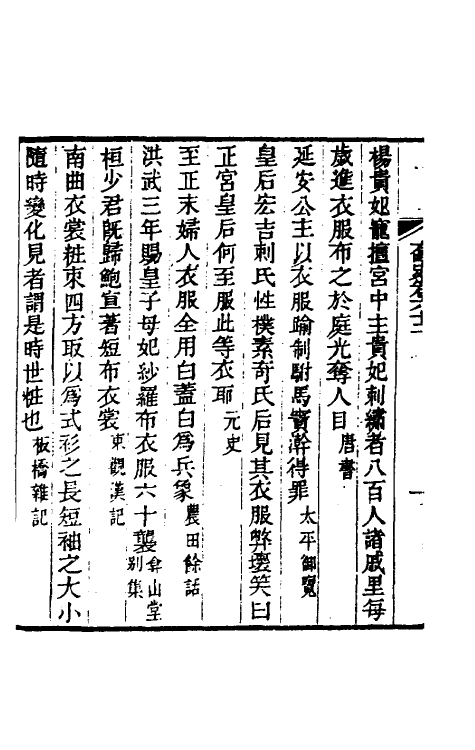 奩史卷六十二
楊貴妃寵擅宮中主貴妃刺繡者八百人諸戚里每
歲進衣服布之於庭光奪人目唐書
延安公主以衣服踰制駙馬竇澣得罪太平御覽
皇后宏吉剌氏性樸素奇氏后見其衣服弊壞笑曰
正宮皇后何至服此等衣耶元史
至正末婦人衣服全用白蓋白為兵象農田餘話
洪武三年賜皇子母妃紗羅布衣服六十襲弇山堂別集
桓少君既歸鮑宣著短布衣裳東觀漢記
南曲衣裳粧束四方取以為式衫之長短袖之大小
隨時變化見者謂是時世粧也板橋雜記